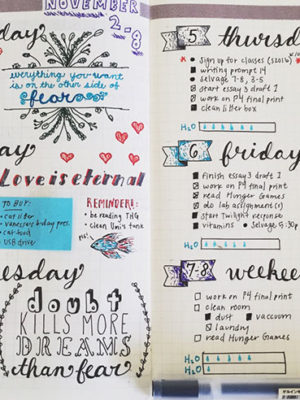 NOVEMBER
2-8
day
everything you want
is on the other side of
fear
ay
Love is eternal
TO BUY:
• cat litter
• vanessa bday pres.
• cat food
• USB drive
REMINDERS:
• be reading THG
• clean Uni's tank
esday
doubt
KILLS MORE
DREAMS
than fear
5 thursd
Sign up for classes (S2016)
writing prompt 14
selvage 7-8, 3-5
start essay 3 draft 1
work on P4 final print
clean litter box
H2O
6 friday
finish essay 3 draft 1
work on P4 final print
read Hunger Games
do lab assignment(s)
start Twilight response
vitamins • Selvage 5:30p
H2O
7-8 weeken
work on P4 final print
clean room
dust vacuum
laundry
read Hunger Games
H2O
H2O